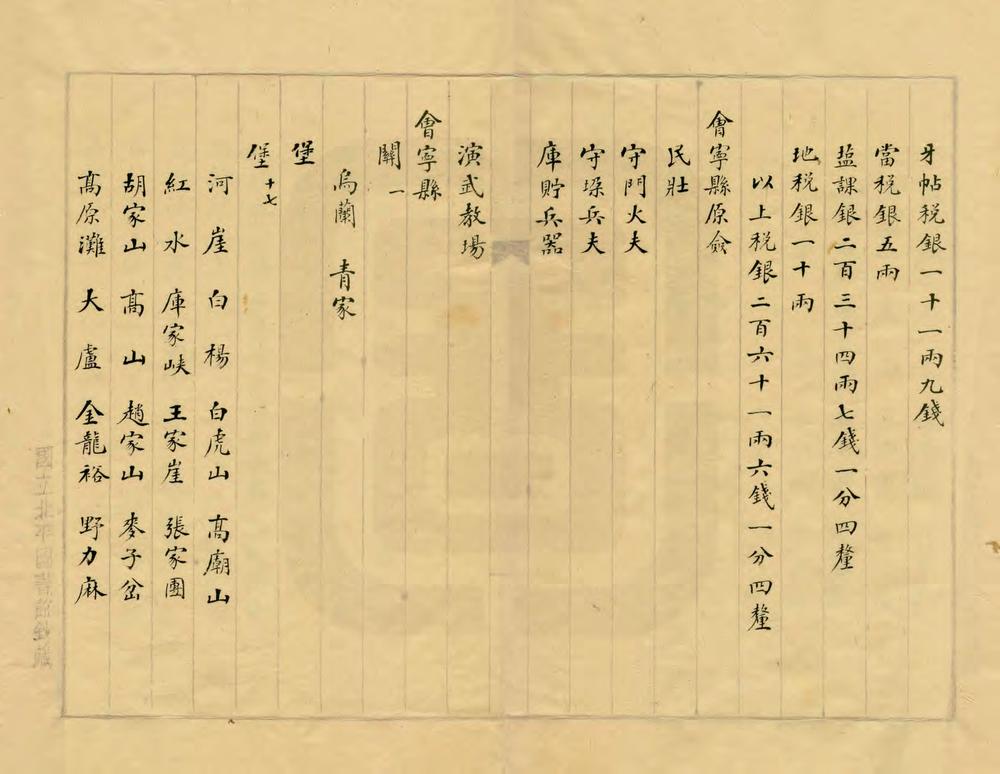 牙帖稅銀一十一兩九錢
當稅銀五兩
盐課銀二百三十四兩七錢一分四釐
地稅銀一十兩
以上稅銀二百六十一兩六錢一分四釐
會寧縣原僉
民壯
守門火夫
守垜兵夫
庫貯兵器
演武教場
會寧縣
關一
烏蘭 青家
堡
堡十七
河崖 白楊 白虎山 高廟山
紅水 庫家峽 王家崖 張家團
胡家山 高山 趙家山 麥子岔
高原灘 大盧 金龍裕 野力麻